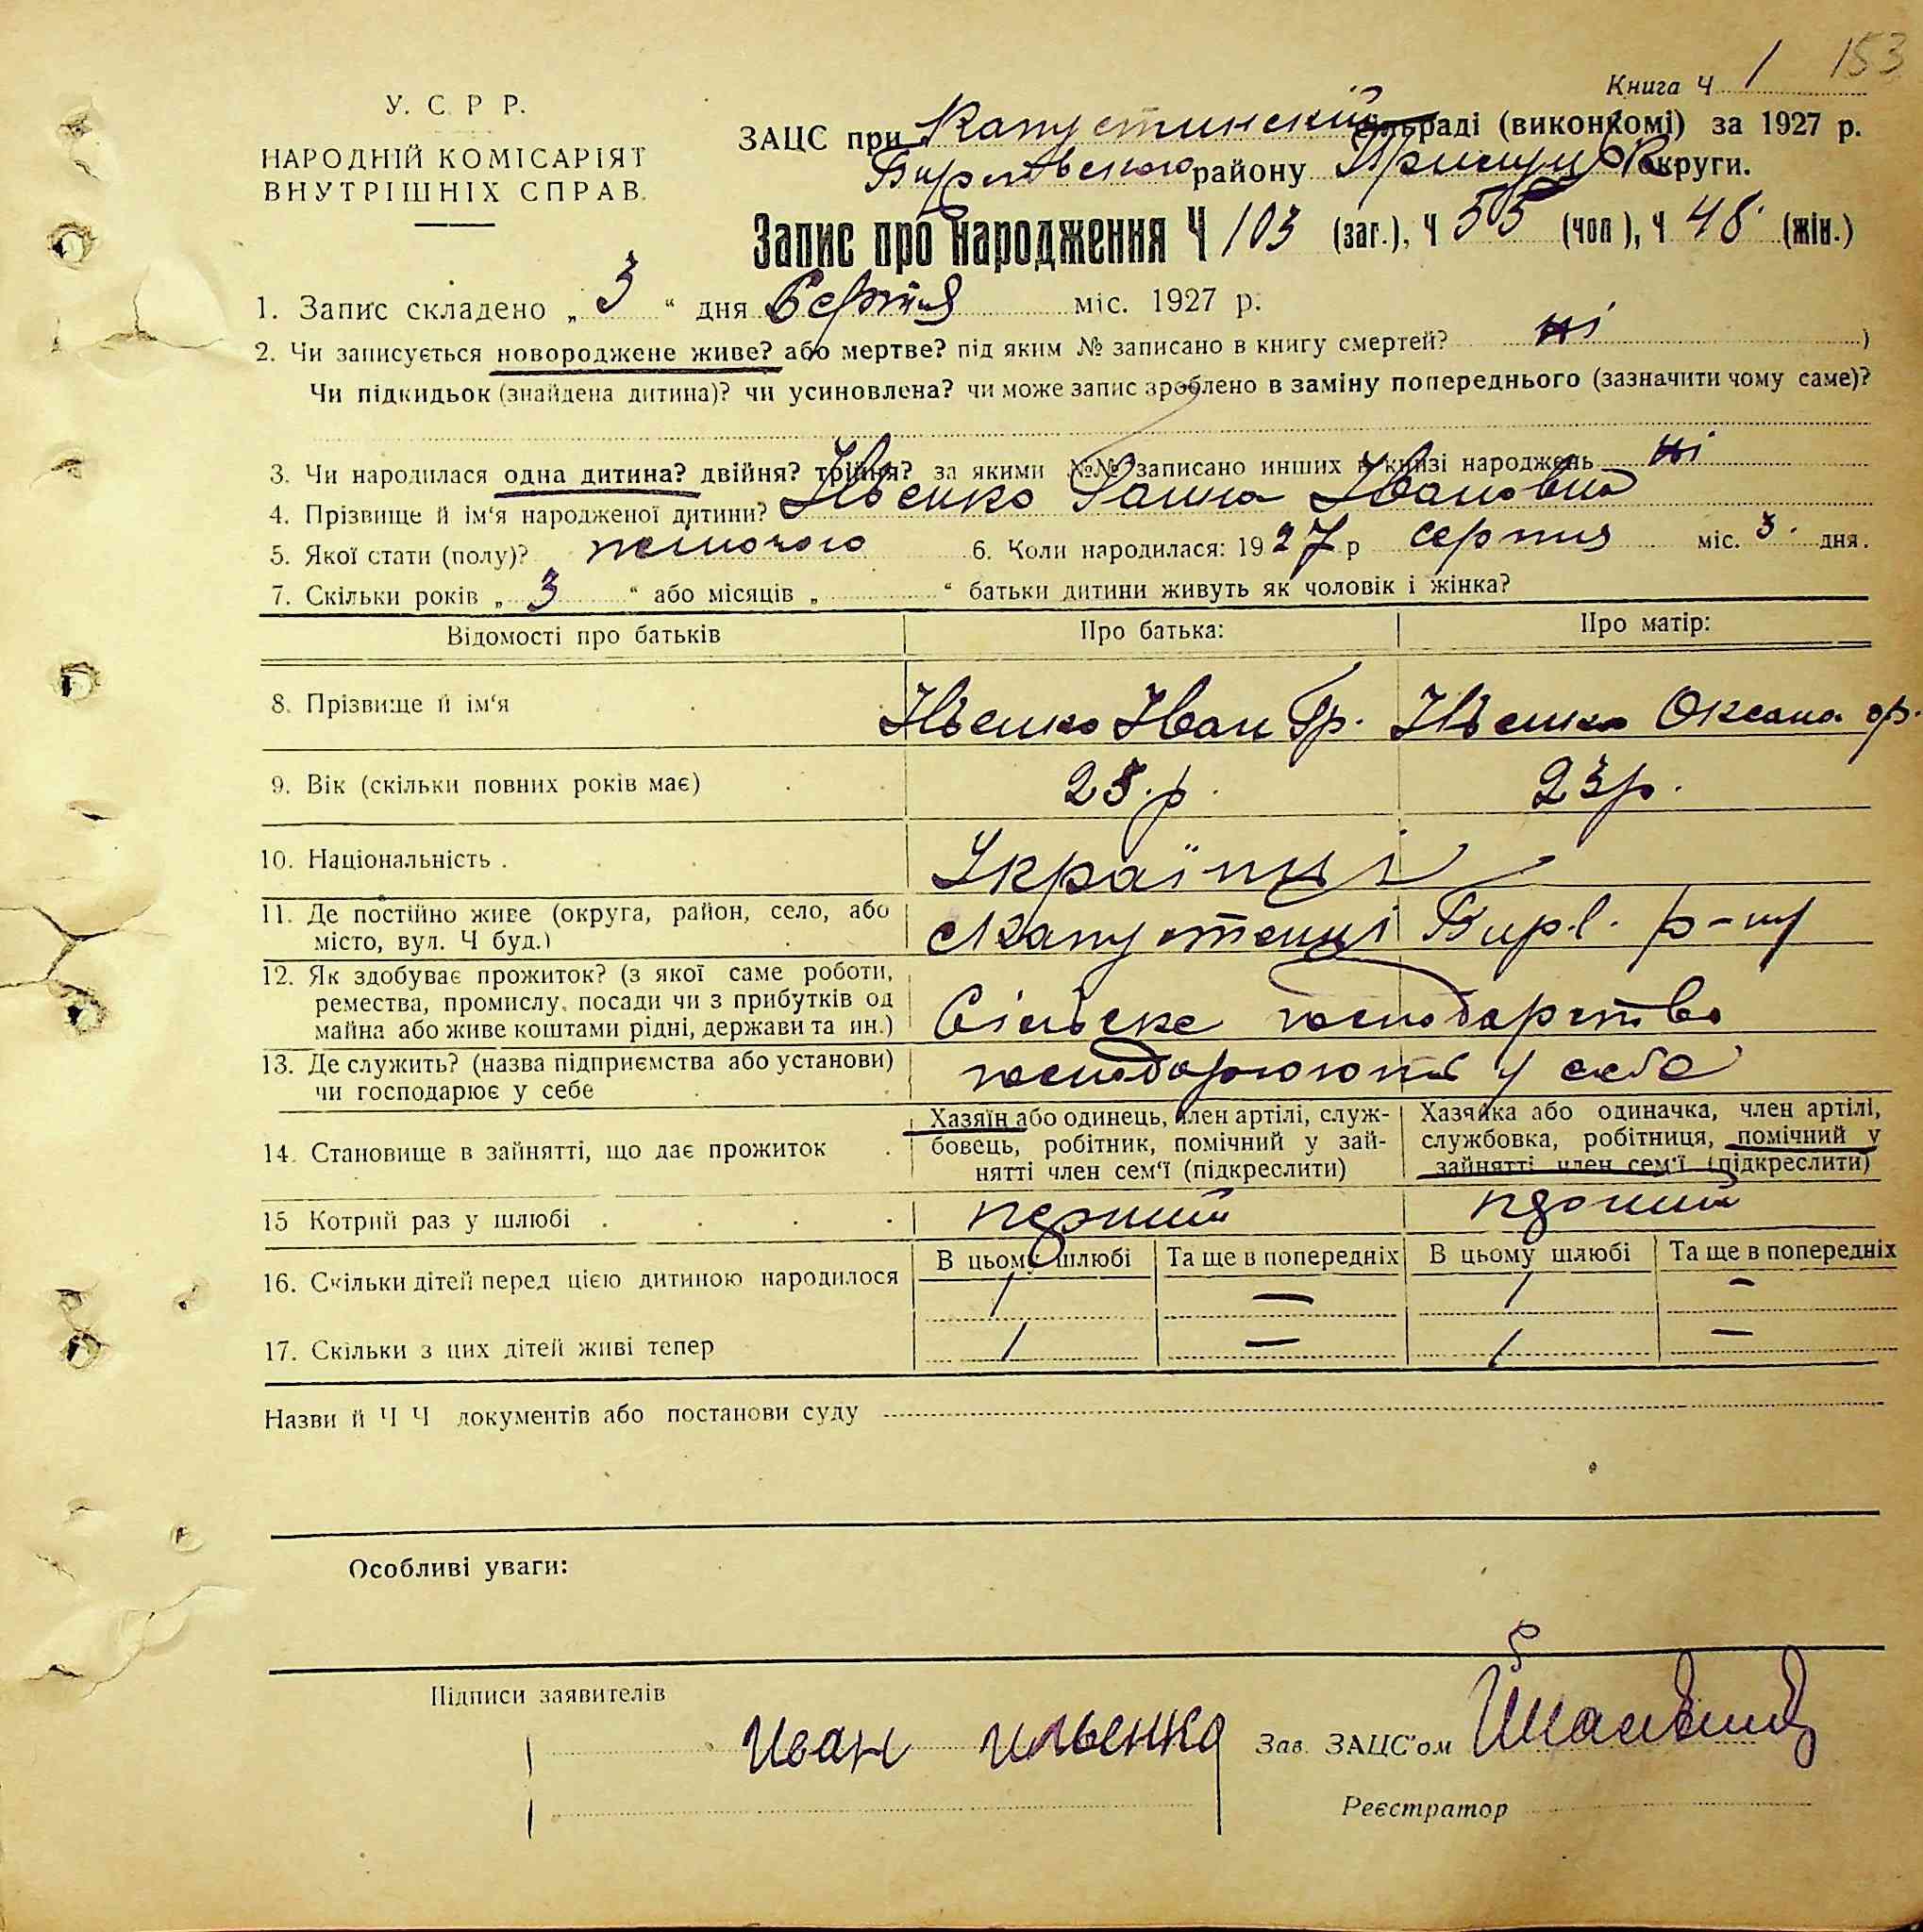 Книга Ч 1 153
У. С. Р. Р.
НАРОДНІЙ КОМІСАРІЯТ
ВНУТРІШНІХ СПРАВ.
ЗАЦС при Капустинский сільраді (виконкомі) за 1927 р.
району округи.
Запис про народження Ч 103 (заг.), Ч 55 (чол), Ч 48. (жін.)
1. Запис складено „ 3 “ дня Серпня міс. 1927 р.
2. Чи записується новороджене живе? або мертве? під яким № записано в книгу смертей? ні )
Чи підкидьок (знайдена дитина)? чи усиновлена? чи може запис зроблено в заміну попереднього (зазначити чому саме)?
3. Чи народилася одна дитина? двійня? трійня? за якими №№ записано инших в книзі народжень ні
4. Прізвище й ім‘я народженої дитини? Івановна
5. Якої стати (полу)? жіночого 6. Коли народилася: 1927 р серпня міс. 3. дня.
7. Скільки років „ 3 “ або місяців „ “ батьки дитини живуть як чоловік і жінка?
Відомості про батьків Про батька: Про матір:
8. Прізвище й ім‘я Ільенко Іван Гр. Ільенко Оксана
9. Вік (скільки повних років має) 25.р. 23р.
10. Національність . Українці
11. Де постійно живе (округа, район, село, або
місто, вул. Ч буд.) Капустенці Вирв. р-ну
12. Як здобуває прожиток? (з якої саме роботи,
ремества, промислу, посади чи з прибутків од
майна або живе коштами рідні, держави та ин.) Сільске господарство
13. Де служить? (назва підприємства або установи)
чи господарює у себе господарюють у себе
14. Становище в зайнятті, що дає прожиток
Хазяїн або одинець, член артілі, служ-
бовець, робітник, помічний у зай-
нятті член сем‘ї (підкреслити)
Хазяйка або одиначка, член артілі,
службовка, робітниця, помічний у
зайнятті член сем‘ї (підкреслити)
15 Котрий раз у шлюбі перший перший
В цьому шлюбі Та ще в попередніх В цьому шлюбі Та ще в попередніх
16. Скільки дітей перед цією дитиною народилося 1 — 1 —
17. Скільки з цих дітей живі тепер 1 — 1 —
Назви й Ч Ч документів або постанови суду
Особливі уваги:
Підписи заявителів
Иван Ильенко Зав. ЗАЦС‘ом
Реєстратор